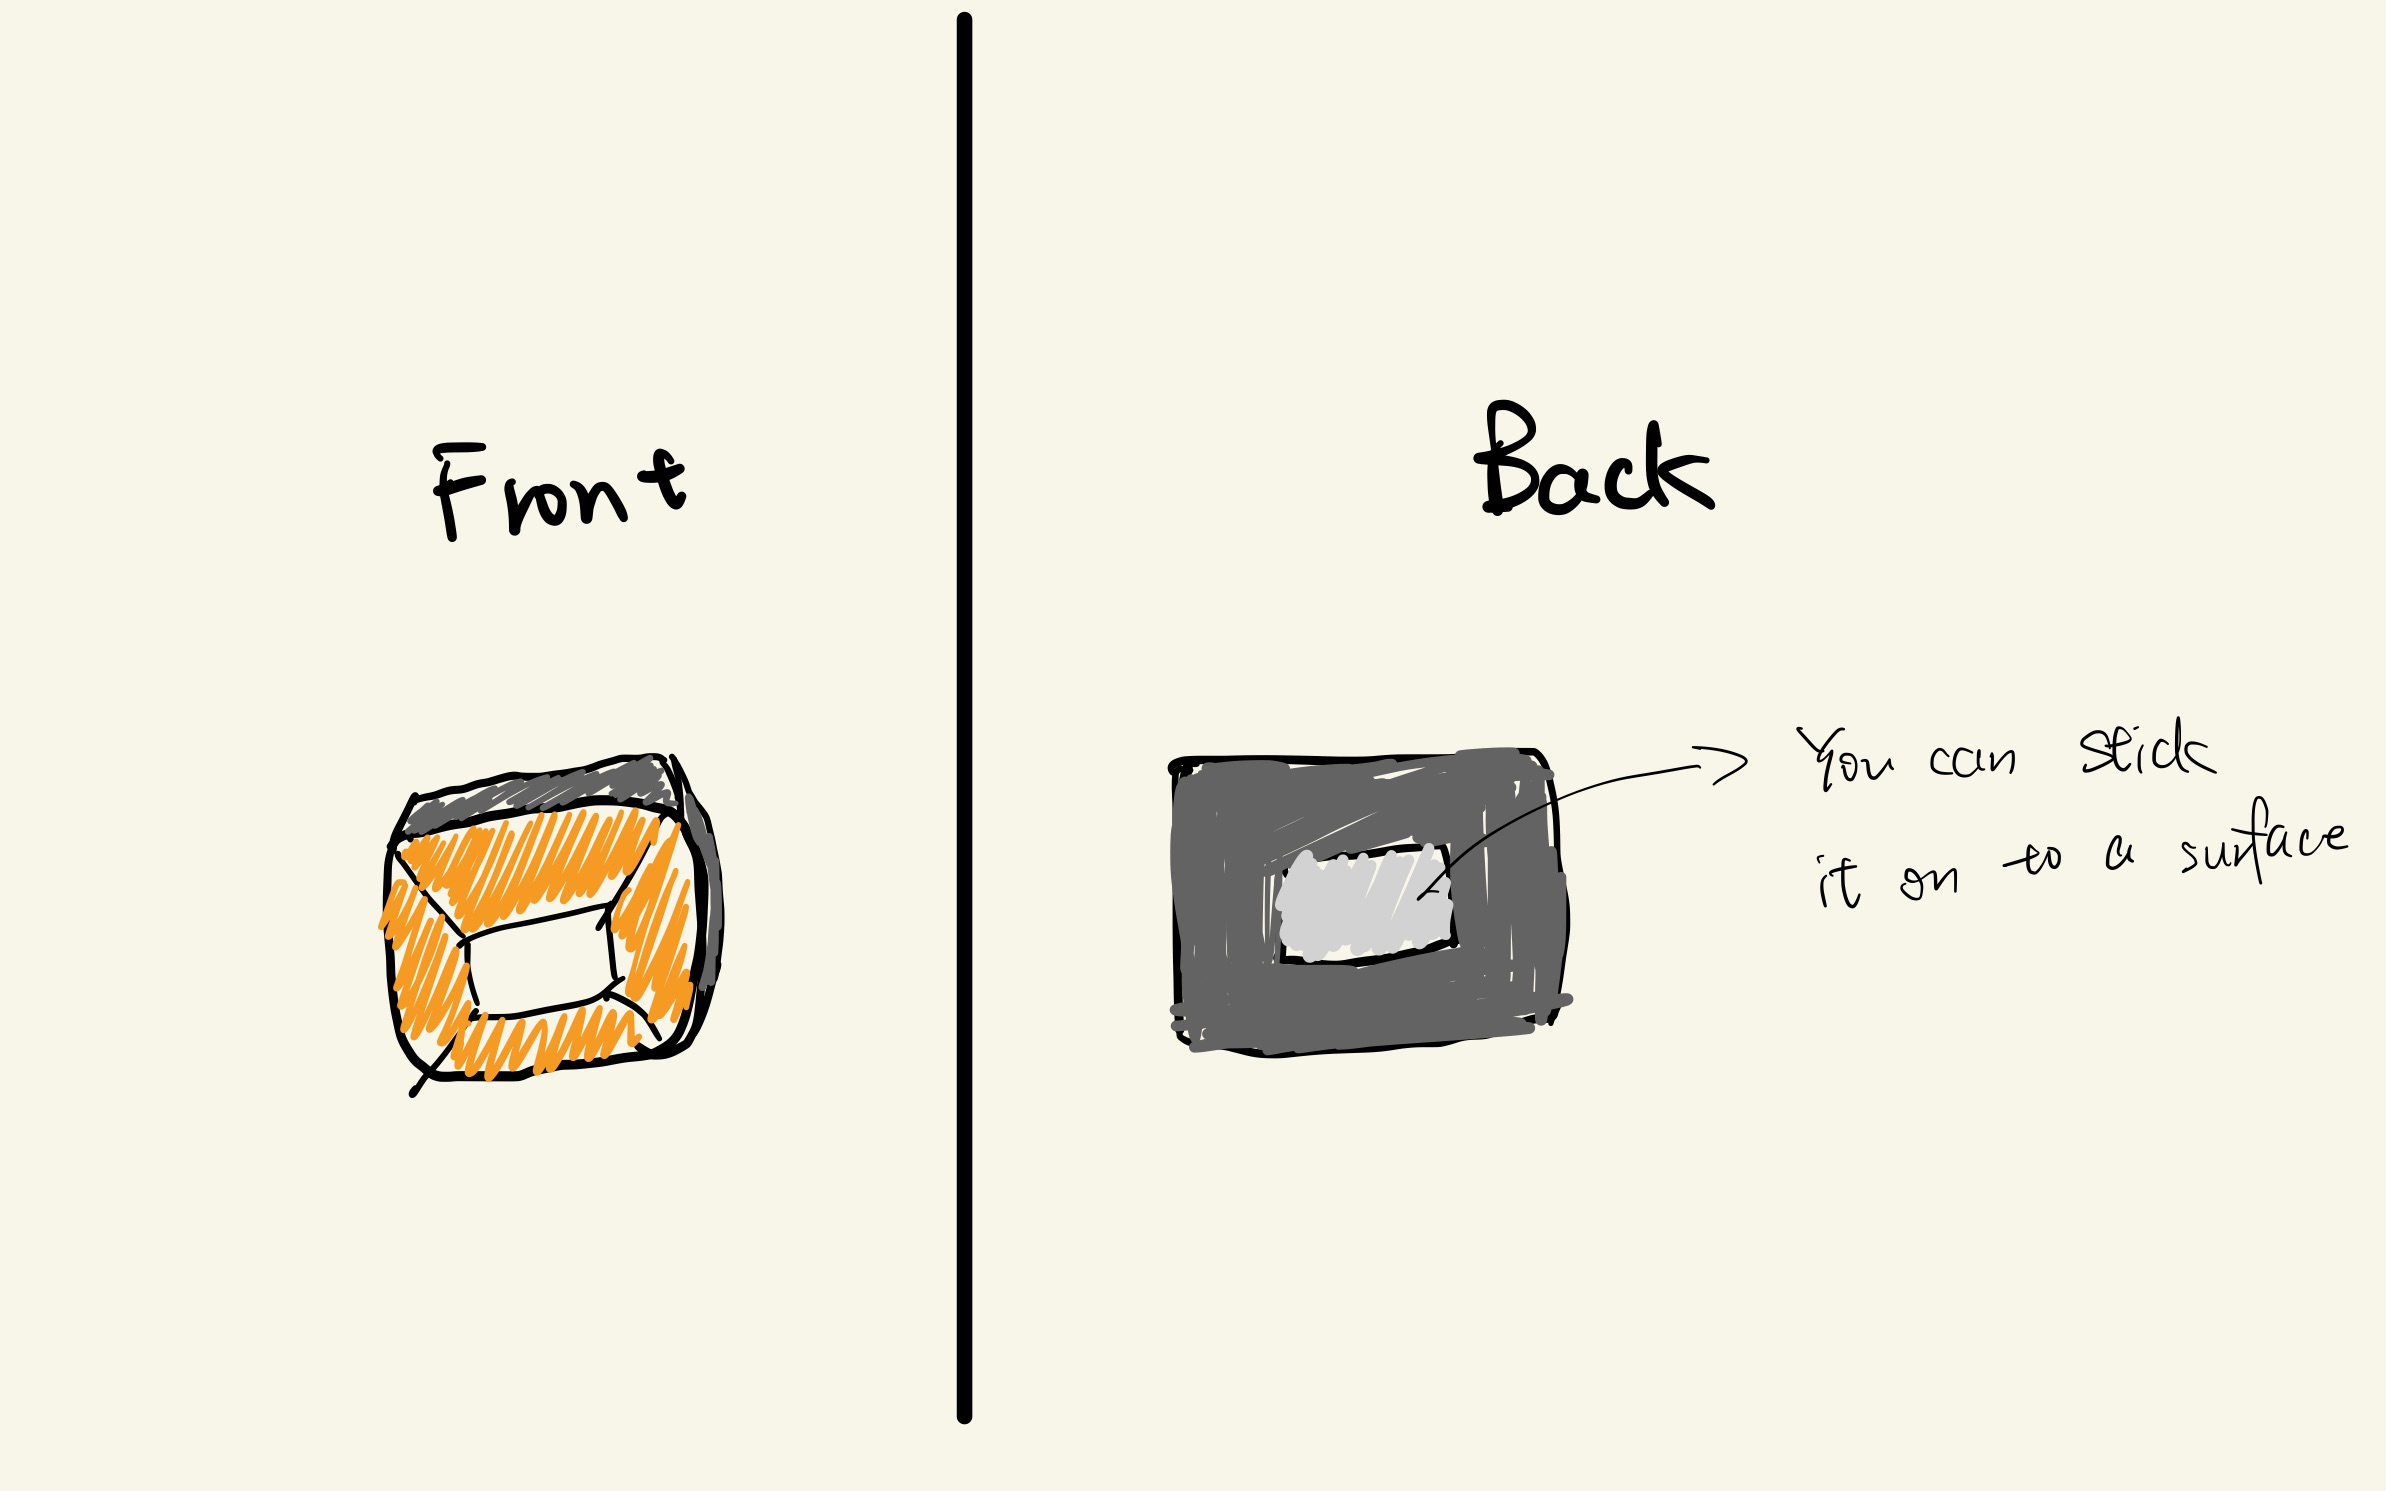 Front
Back
You can stick
it on to a surface